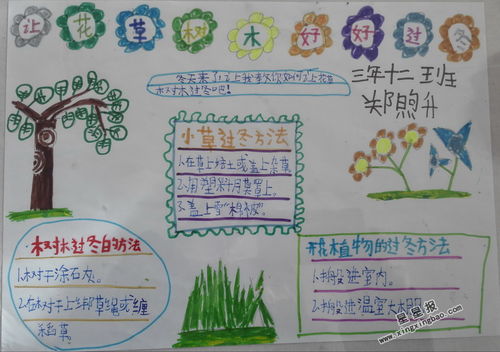 让花草树木好好过冬
冬天来了!让我来教你如何让花草
树木过冬吧!
三年十二班
郑煦升
小草过冬方法
1.在草上培土或盖上杂草
2.用塑料月莫罩上。
3.盖上雪"棉被"。
树木过冬的方法
1.树干涂石灰。
2.在树干上绑草绳或缠
稻草。
开花植物的过冬方法
1.搬进室内。
2.搬进温室大棚
星星报
www.xingxingbao.com